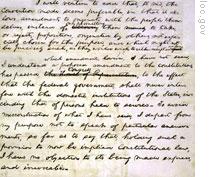 I will venture to add that to me the
Convention mode seems preferable, in that it al-
lows amendments to originate with the people them-
selves, instead of only permitting them to take
or reject, propositions, originated by others, not espe-
cially chosen for the purpose, and which might not
be precisely such, as they would wish
I understand a proposed amendment to the Constitution
has passed Congress, to the effect
that the federal government, shall never inter-
fere with the domestic institutions of the States, in-
cluding that of persons held to service. To avoid
misconstruction of what I have said, I depart from
my purpose not to speak of particular amend-
ments, so far as to say that, holding such a
provision to now be implied constitutional law,
I have no objection to its being made express,
and irrevocable.